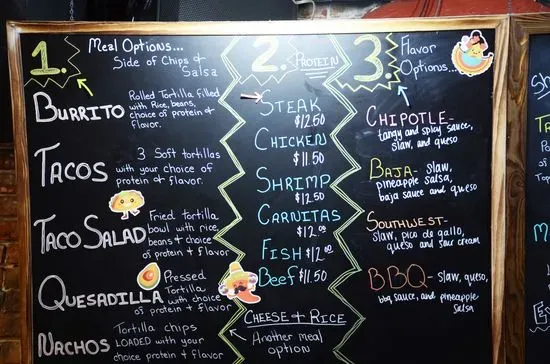 1.
Meal Options...
Side of Chips &
Salsa
BURRITO
Rolled Tortilla filled
with Rice, beans,
choice of protein &
flavor.
TACOS
3 Soft tortillas
with your choice of
protein & flavor.
TACO SALAD
Fried tortilla
bowl with rice
beans & choice
of protein & flavor
QUESADILLA
Pressed
Tortilla
with choice
of protein & flavor
NACHOS
Tortilla chips
LOADED with your
choice of protein & flavor
2.
PROTEIN
STEAK
$12.50
CHICKEN
$11.50
SHRIMP
$12.50
CARNITAS
$12.00
FISH $12.00
Beef $11.50
CHEESE & RICE
Another meal
option
3.
Flavor
Options...
CHIPOTLE-
tangy and spicy sauce,
slaw, and queso
BAJA- slaw,
pineapple salsa,
baja sauce and queso
SOUTHWEST-
slaw, pico de gallo,
queso and sour cream
BBQ- slaw, queso,
bbq sauce, and pineapple
salsa